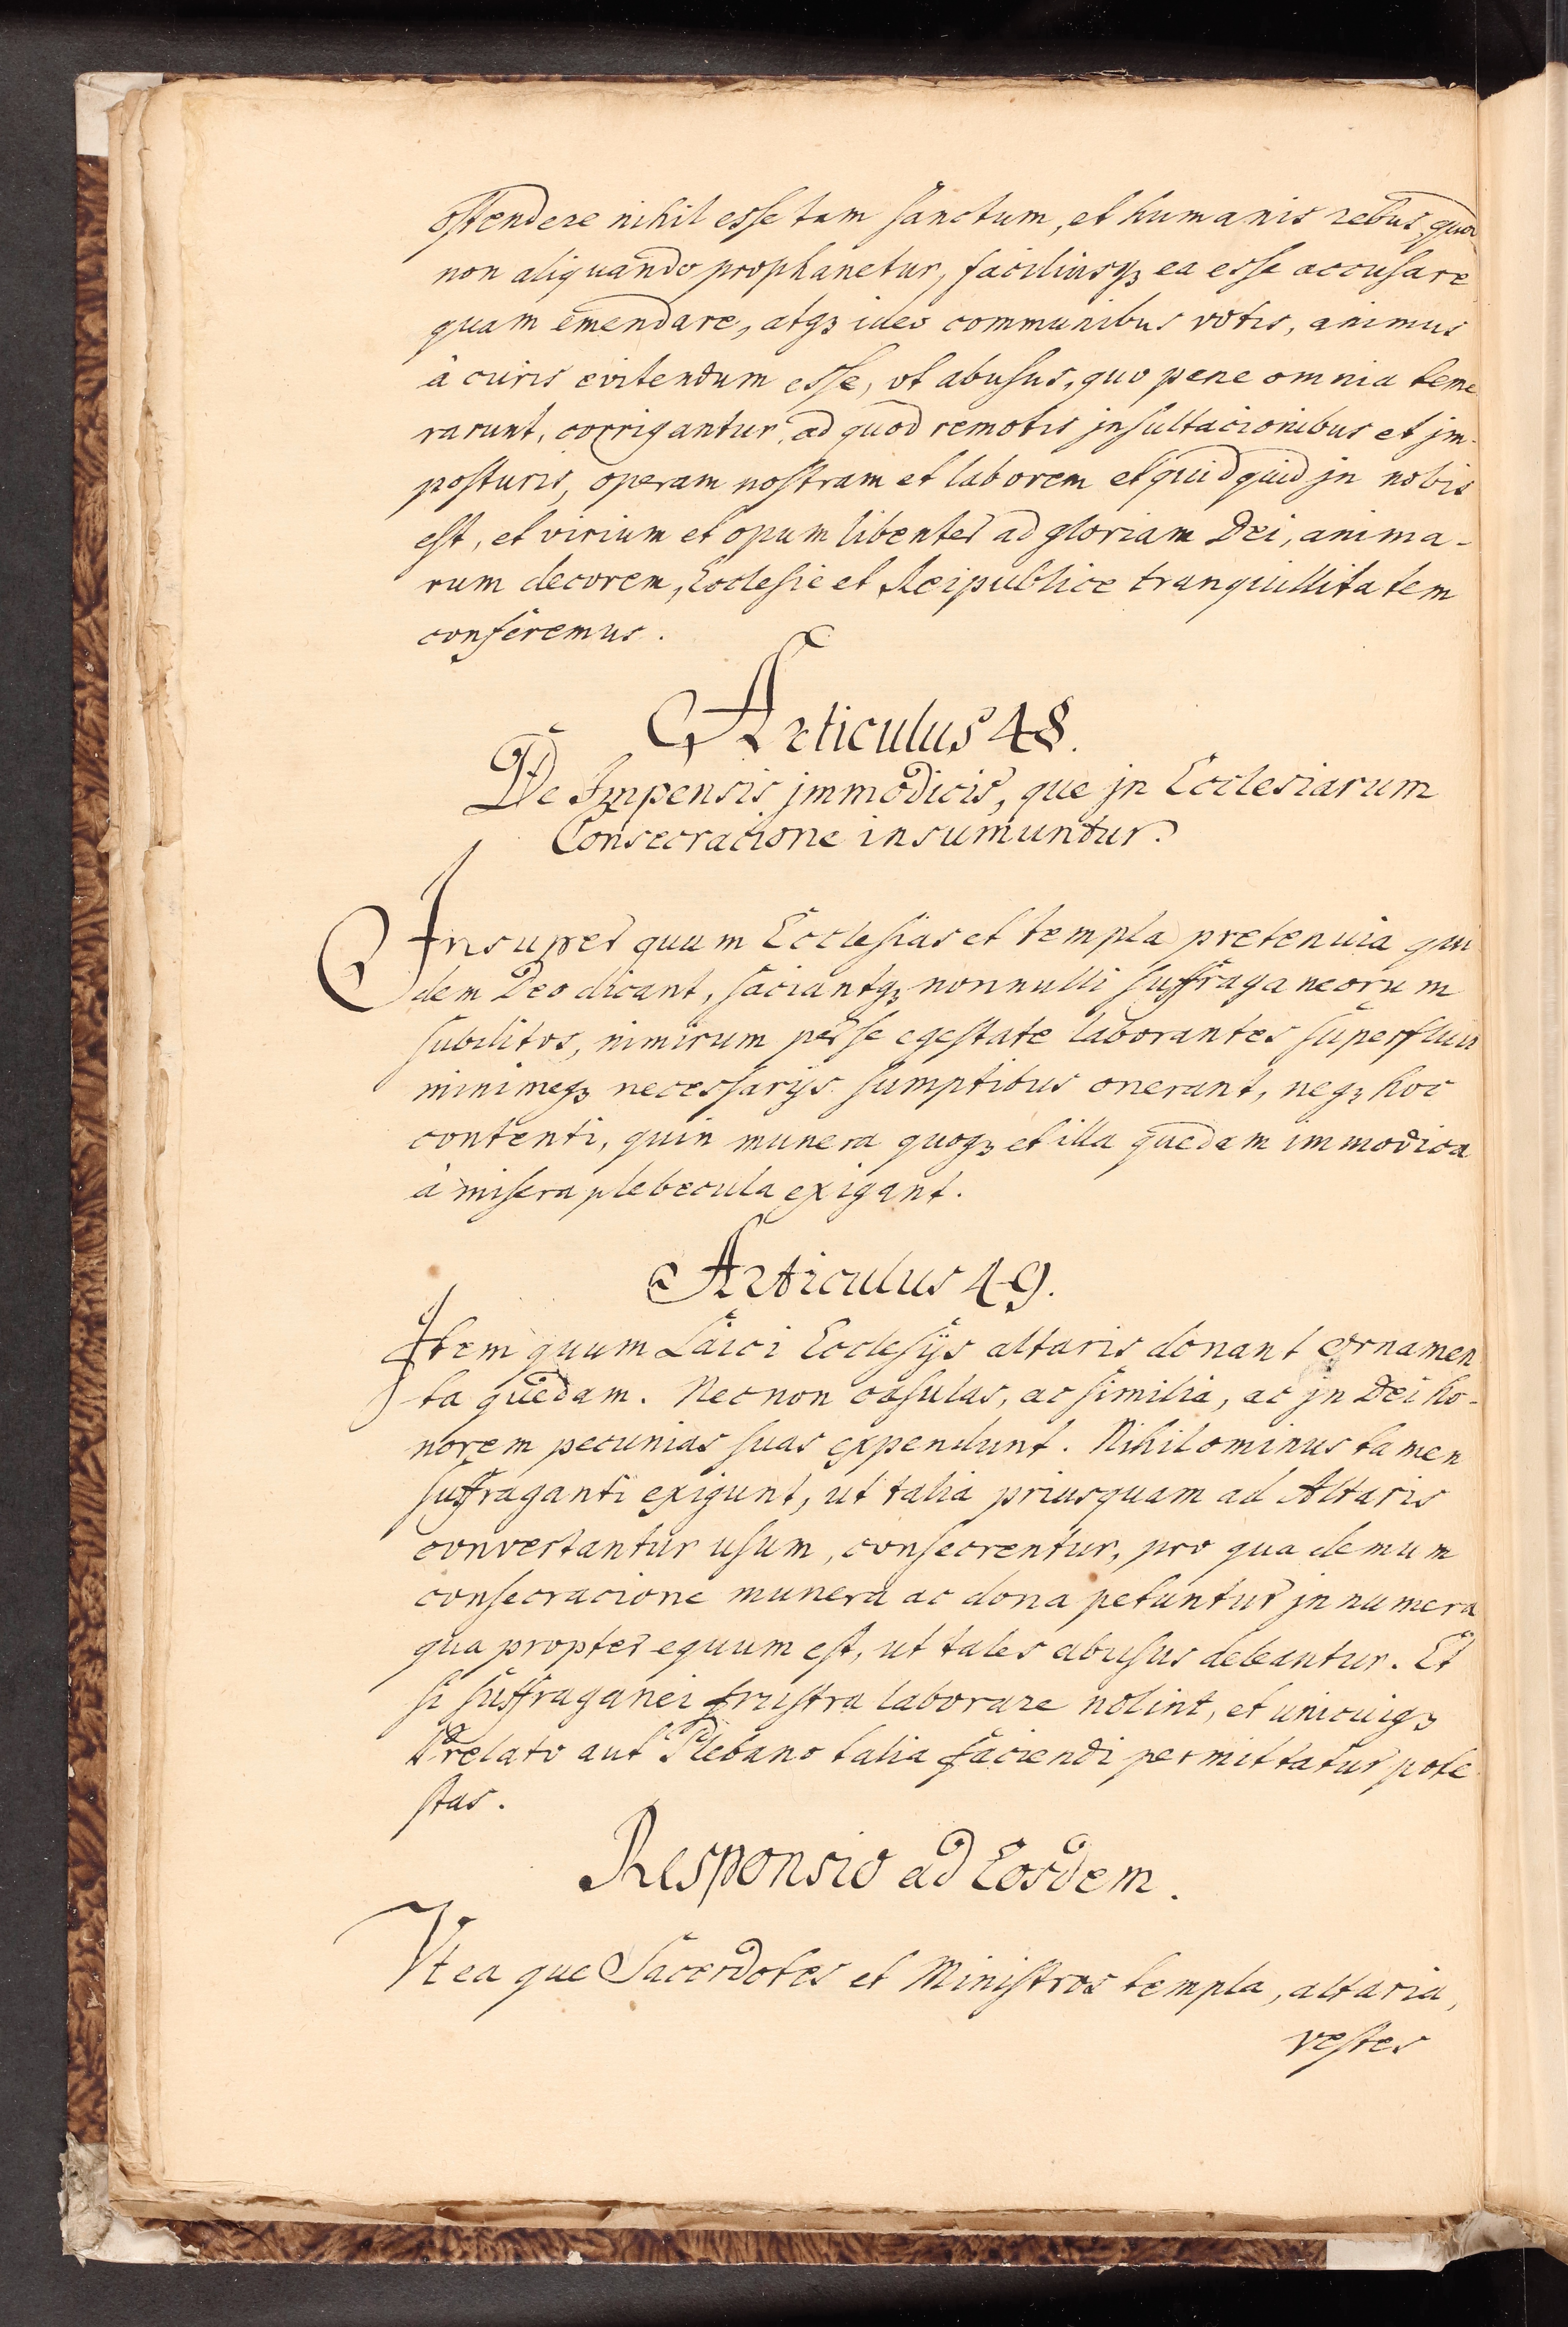 ostendere nihil esse tam sanctum, et humanis rebus, quod
non aliquando prophanetur, faciliusqꝫ ea esse accusare
quam emendare, atqꝫ ideo communibus votis, animus
à curis evitendum esse, vt abusus, quo pene omnia teme
rarunt, corrigantur, ad quod remotis jnsultacionibus et jm-
posturis, operam nostram et laborem et quidquid jn nobis
est, et virium et opum libenter ad gloriam Dei, anima-
rum decorem, Ecclesie et Reipublice tranquillitatem
conferemus.
Articulus 48.
De Impensis jmmodicis, que jn Ecclesiarum
Consecracione insumuntur.
Insuper quum Ecclesias et templa pretenuia qui
dem Deo dicant, faciantqꝫ nonnulli suffraganeorum
subditos, nimirum per se egestate laborantes superfluis
minimeqꝫ necessarijs sumptibus onerant, neqꝫ hoc
contenti, quin munera quoqꝫ et illa quedam immodica
à misera plebecula exigant.
Articulus 49.
Item quum Laici Ecclesijs altaris donant ornamen
ta quedam. Necnon casulas, ac similia, ac jn Dei ho-
norem pecunias suas expendunt. Nihilominus tamen
suffraganti exigunt, ut talia priusquam ad Altaris
convertantur usum, consecrentur, pro qua demum
consecracione munera ac dona petuntur jnnumera
qua propter equum est, ut tales abusus deleantur. Et
si suffraganei frustra laborare nolint, et unicuiqꝫ
Prelato aut Plebano talia faciendi permittatur pote
stas.
Responsio ad Eosdem.
Vt ea que Sacerdotes et Ministros templa, altaria,
vestes